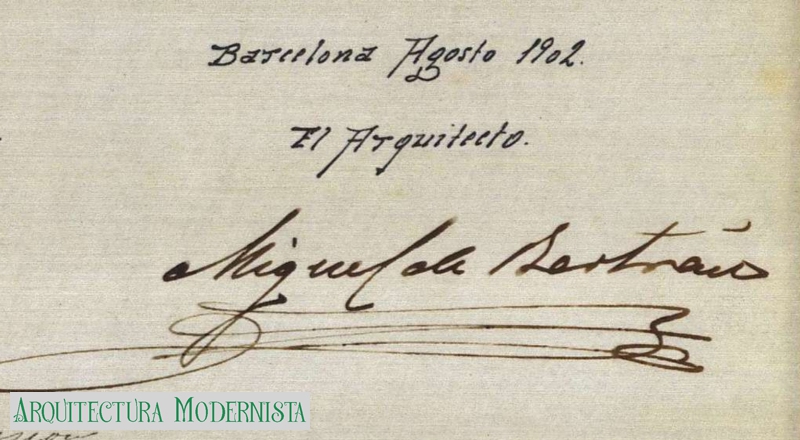 Barcelona Agosto 1902.
El Arquitecto.
Miguel de Bertrán
ARQUITECTURA MODERNISTA